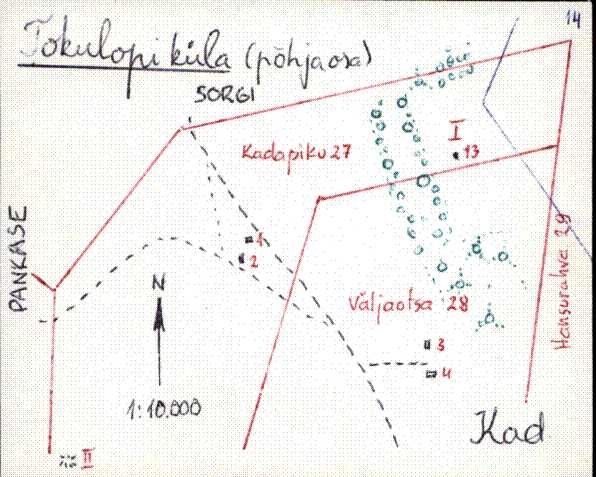 14
Tokulopi küla (põhjaosa)
SORGI
Kadapiku 27
I
13
PANKASE
1
2
N
Väljaotsa 28
Hansurahva 29
3
4
1:10.000
Kad
II